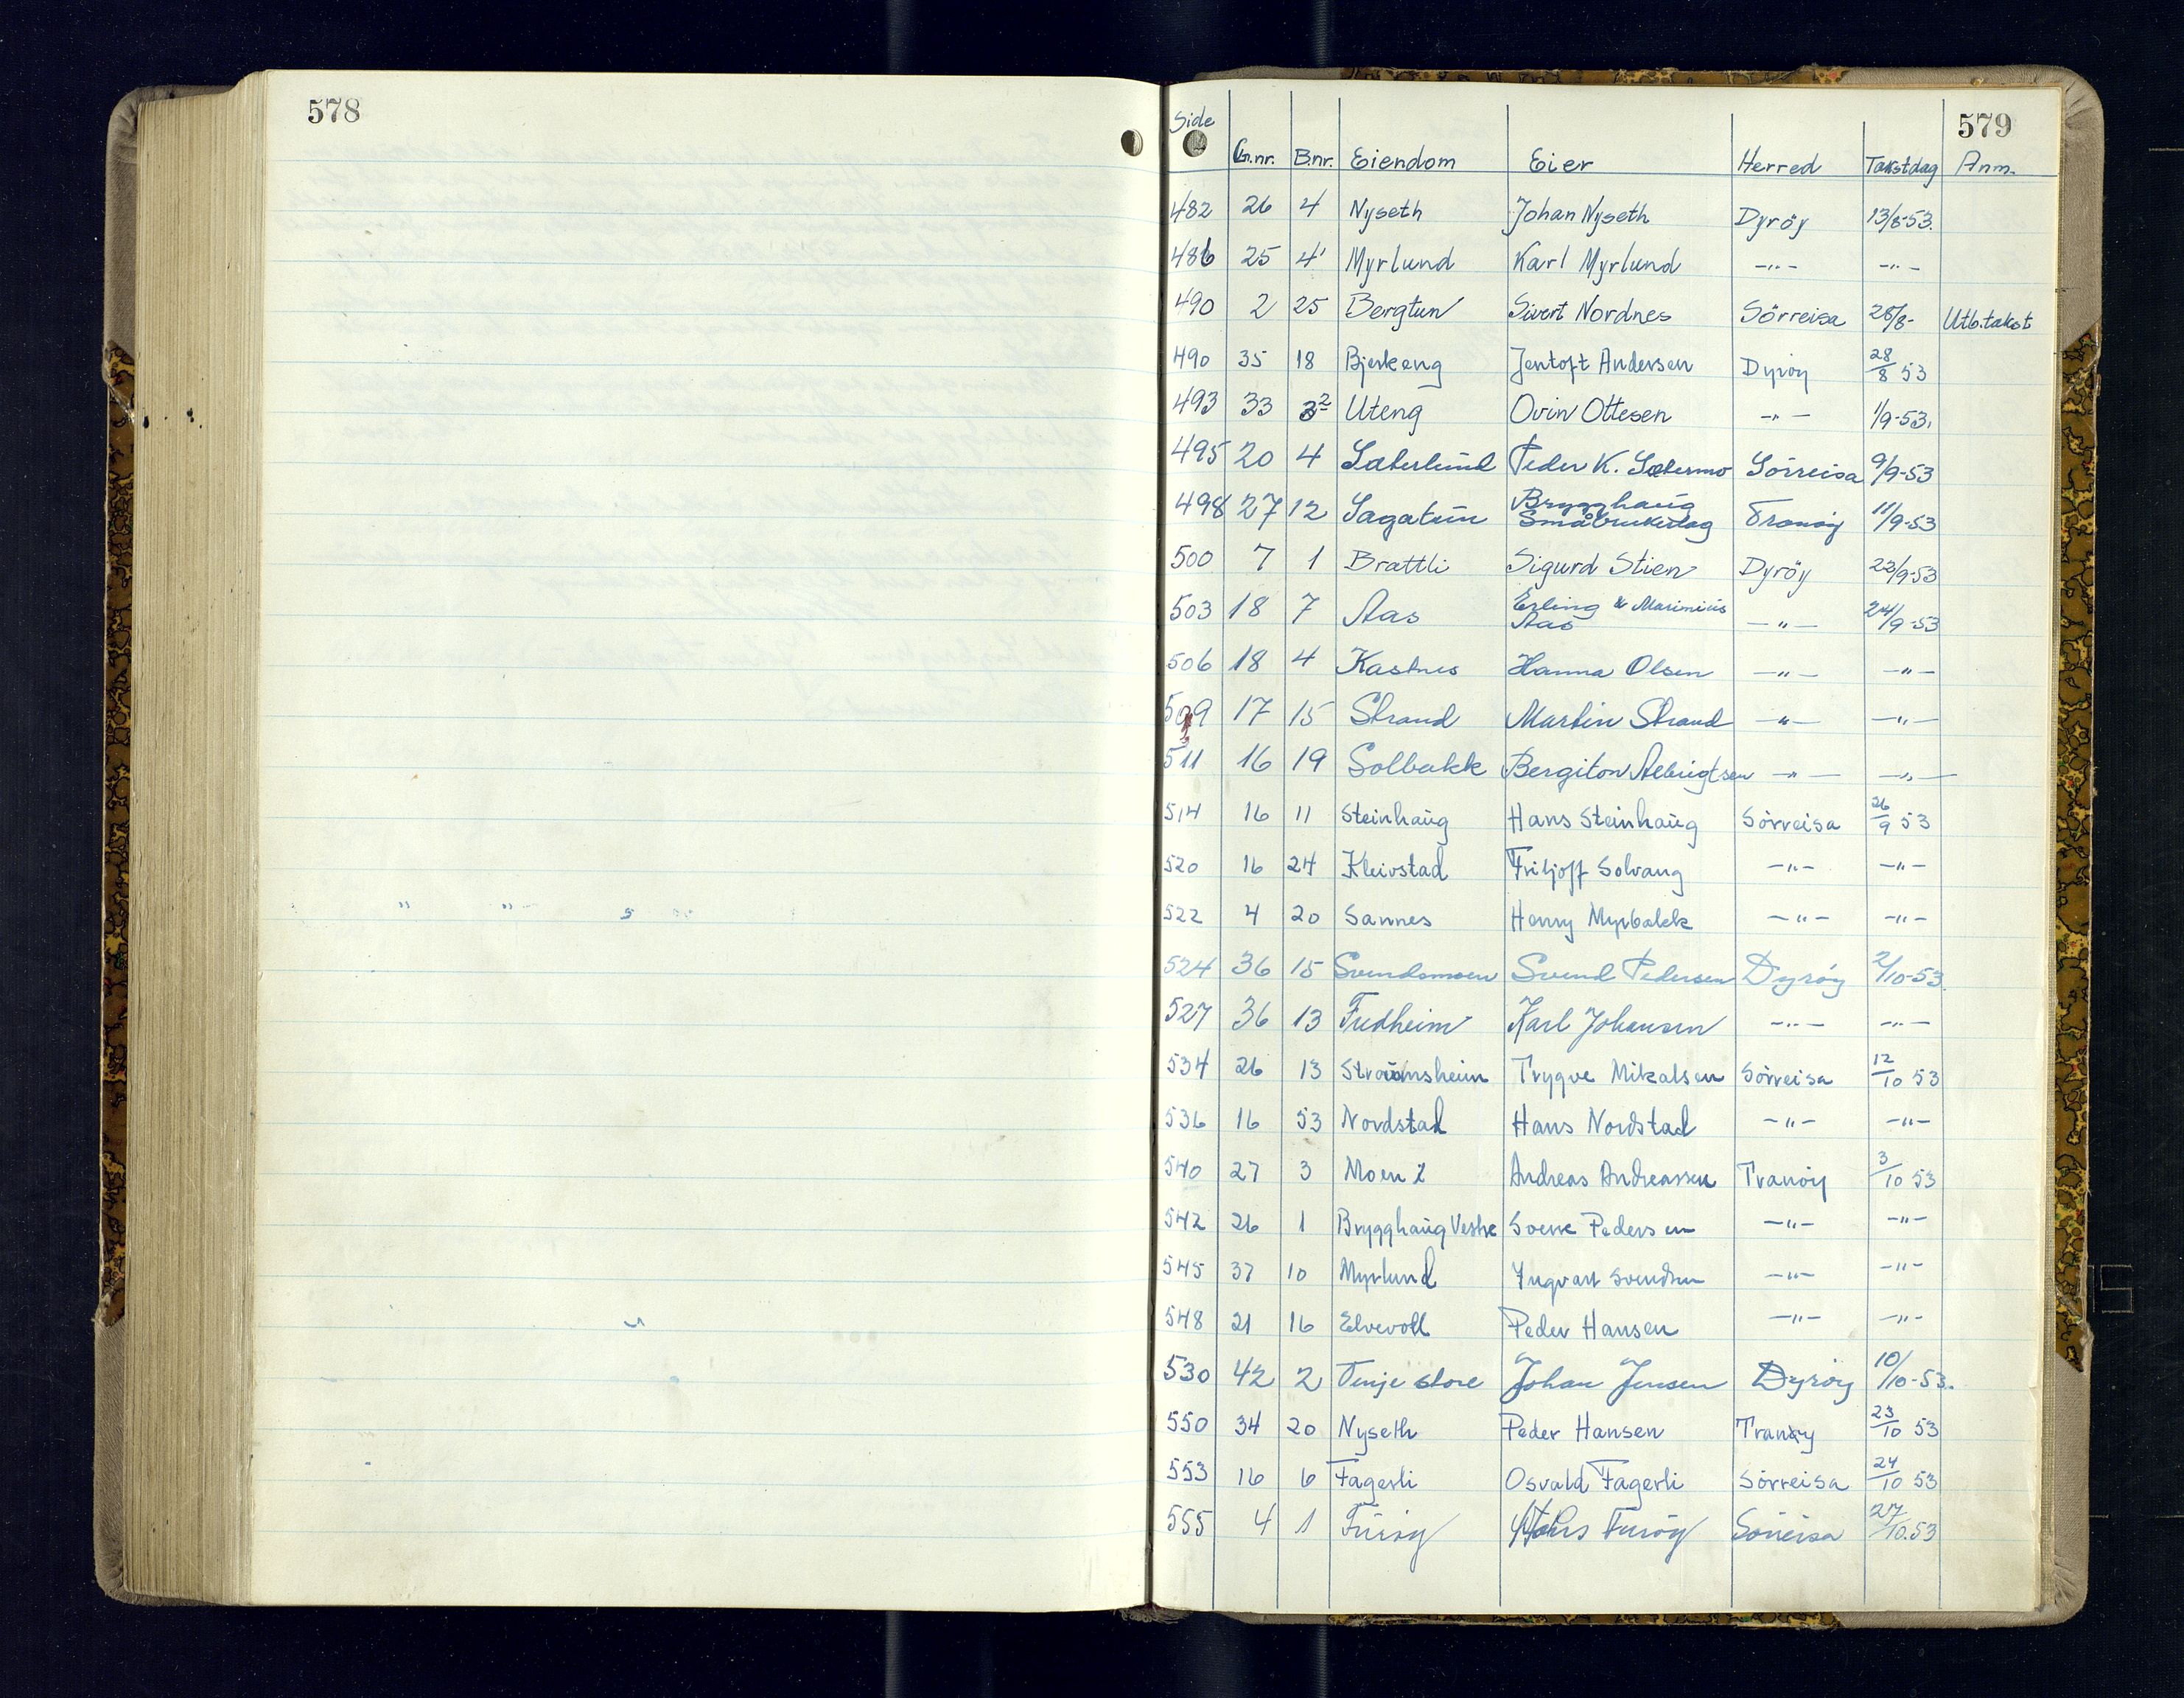 578
579
Side G.nr. B.nr. Eiendom Eier Herred Takstdag Anm.
482 26 4 Nyseth Johan Nyseth Dyröy 13/8-53.
486 25 4 Myrlund Karl Myrlund -"- -"-
490 2 25 Bergtun Sivert Nordnes Sörreisa 28/8- Utb.takst
490 35 18 Bjerkeng Jentoft Andersen Dyröy 28/8 53
493 33 2 Uteng Ovin Ottesen -"- 1/9-53.
495 20 4 Sæterlund Peder K. Sætermo Sörreisa 9/9-53
498 27 12 Sagatun Brygghaug Småbrukerlag Tranöy 11/9-53
500 7 1 Brattli Sigurd Stien Dyröy 23/9-53
503 18 7 Aas Erling & Marinius Aas -"- 24/9-53
506 18 4 Kastnes Hanna Olsen -"- -"-
509 17 15 Strand Martin Strand -"- -"-
511 16 19 Solbakk Bergiton Albrigtsen -"- -"-
514 16 11 Steinhaug Hans Steinhaug Sörreisa 26/9 53
520 16 24 Kleivstad Fritjoff Solvang -"- -"-
522 4 20 Sannes Henry Myrbakk -"- -"-
524 36 15 Svendsmoen Svend Pedersen Dyröy 2/10-53.
527 36 13 Fredheim Karl Johansen -"- -"-
534 26 13 Straumsheim Trygve Mikalsen Sörreisa 12/10 53
536 16 53 Nordstad Hans Nordstad -"- -"-
540 27 3 Moen i Andreas Andreassen Tranöy 3/10 53
542 26 1 Brygghaug Vestre Sverre Pedersen -"- -"-
545 37 10 Myrlund Yngvart Svendsen -"- -"-
548 21 16 Elvevoll Peder Hansen -"- -"-
530 42 2 Finje store Johan Jensen Dyröy 10/10-53.
550 34 20 Nyseth Peder Hansen Tranöy 23/10 53
553 16 6 Fagerli Osvald Fagerli Sörreisa 24/10 53
555 4 1 Furöy Furöy Sörreisa 27/10.53